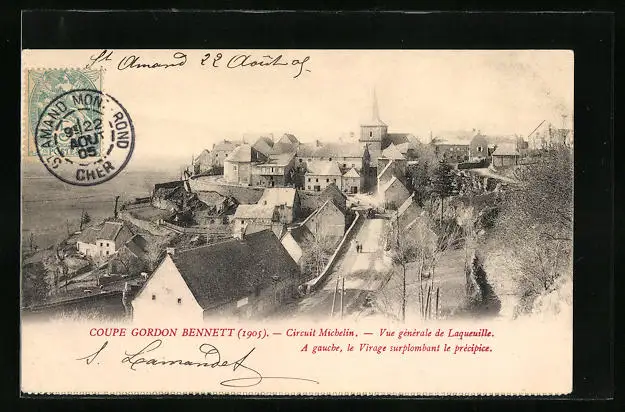 St Amand 22 Août 05
ST AMAND MONT-ROND
22
AOUT
05
CHER
COUPE GORDON BENNETT (1905). — Circuit Michelin. — Vue générale de Laqueuille.
A gauche, le Virage surplombant le précipice.